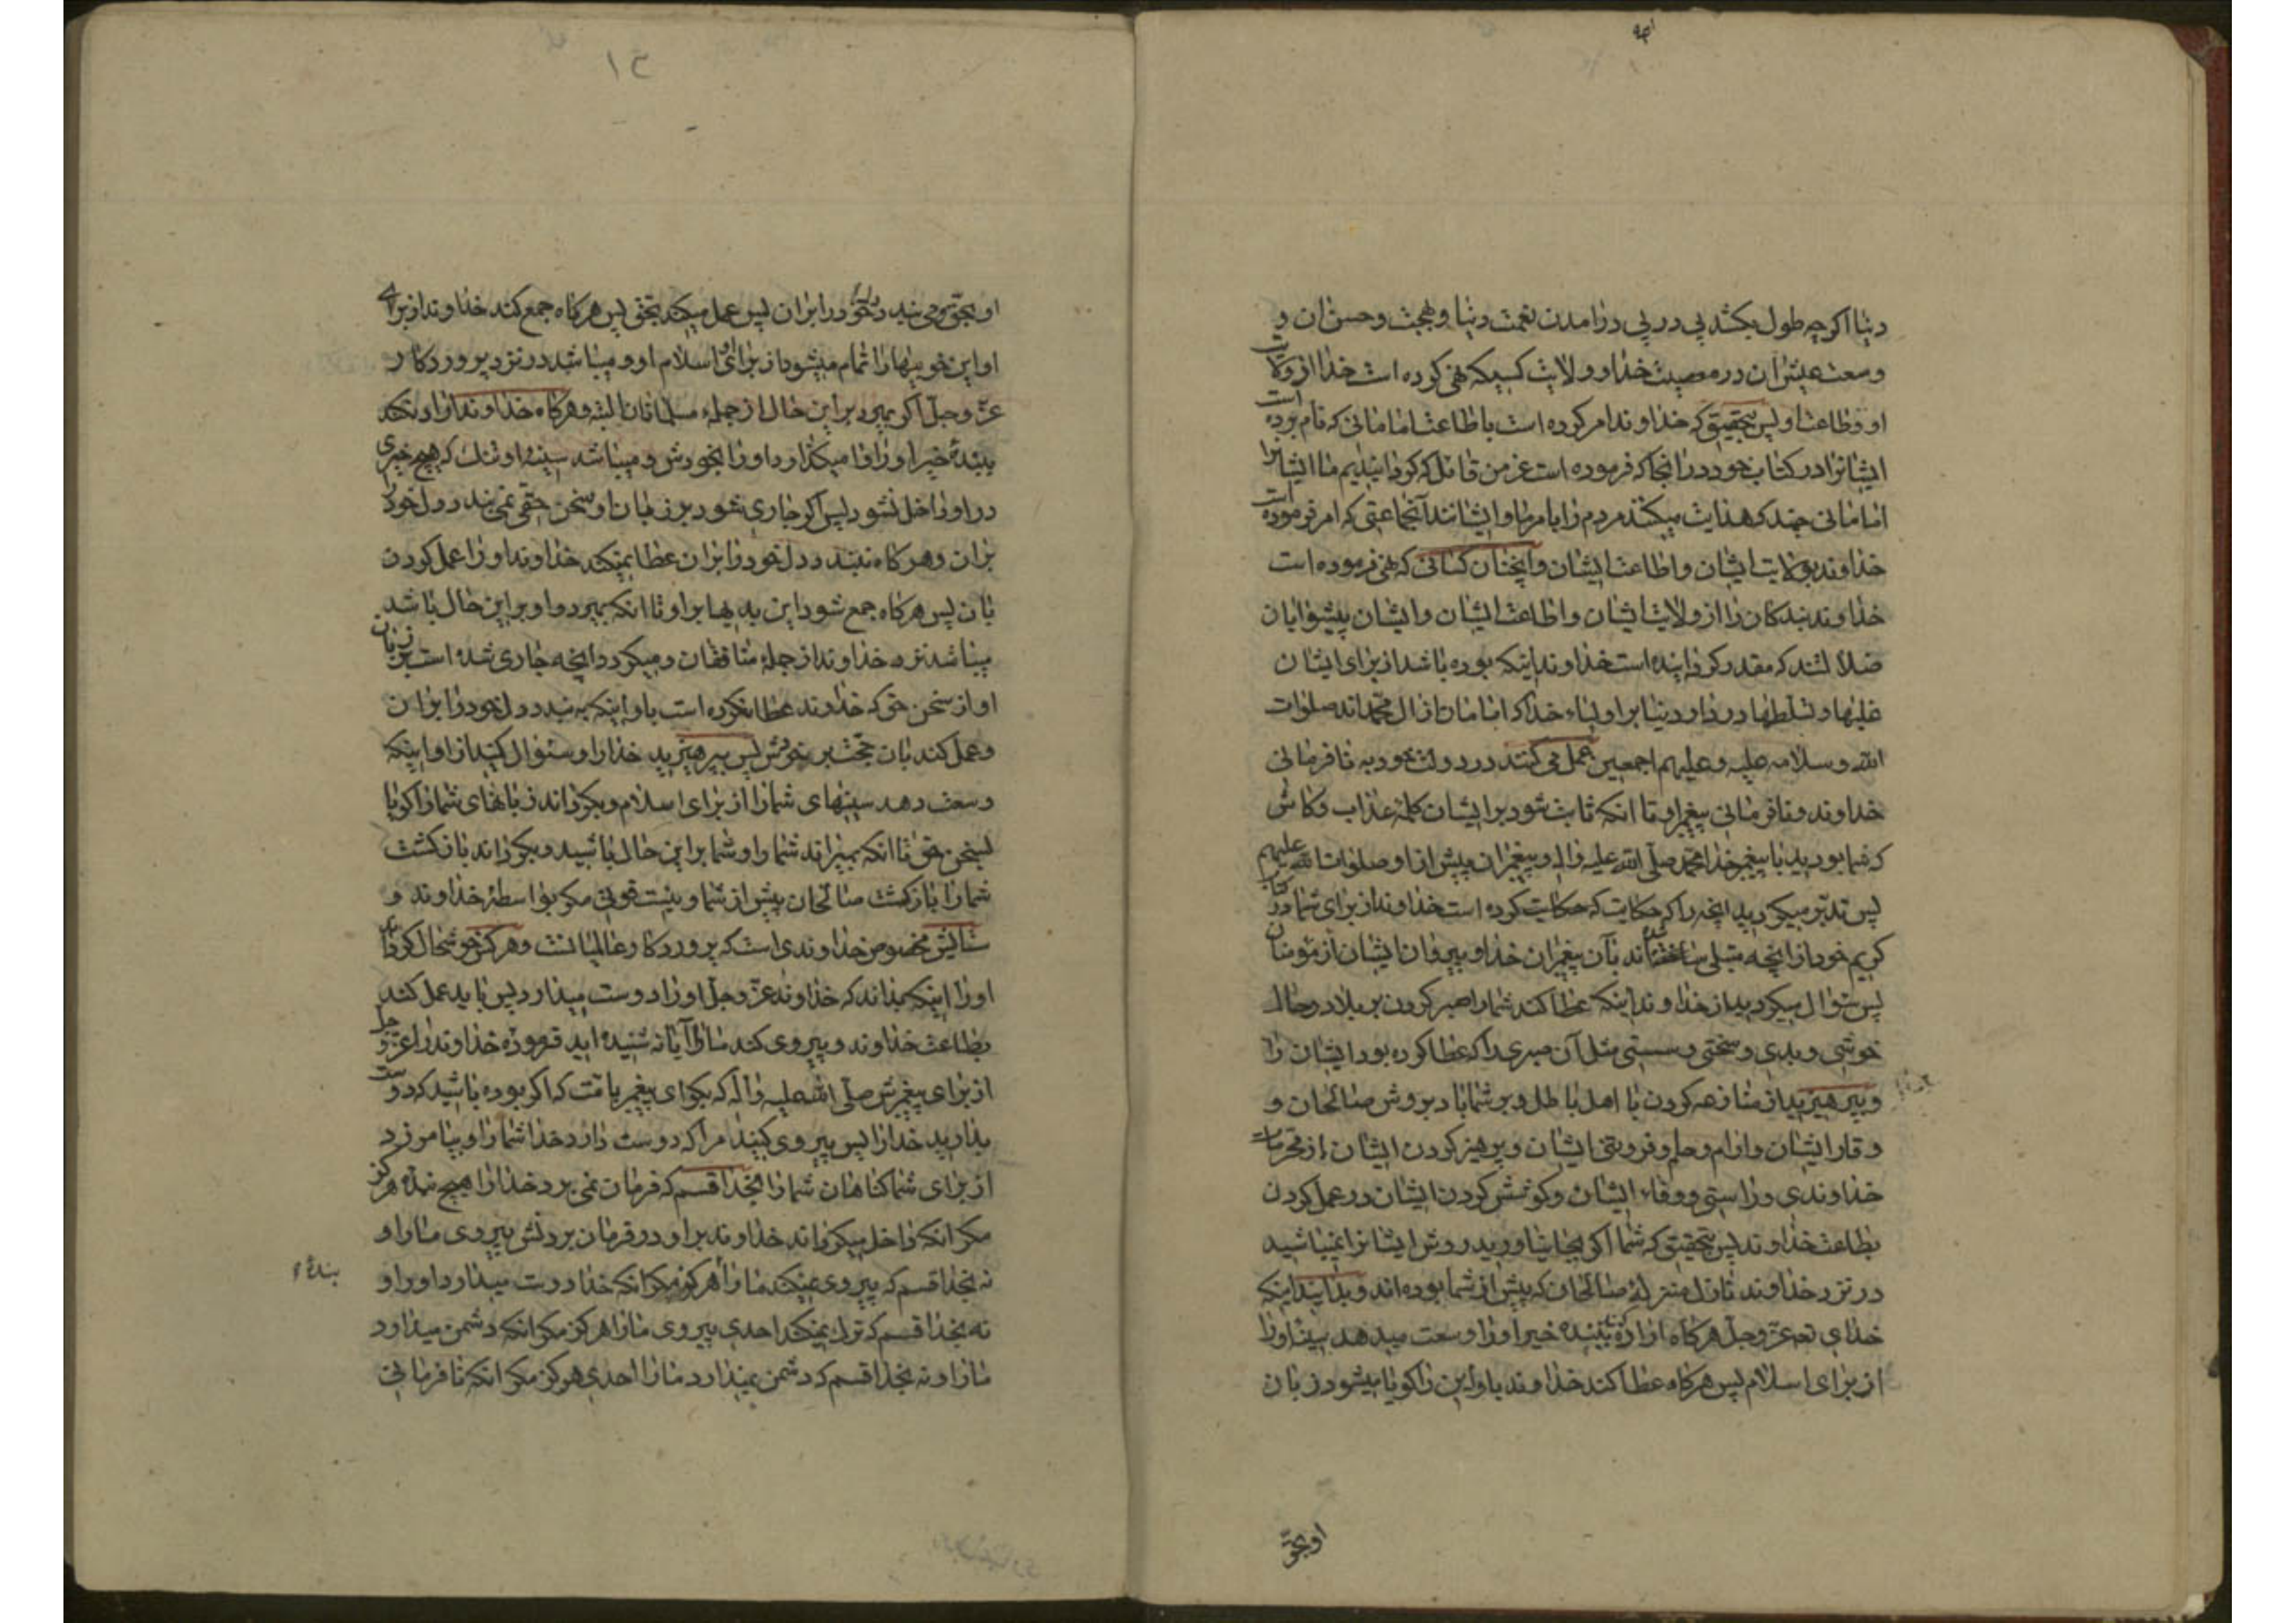 دنیا اکرچه طول بکشد پی در پی درامدن نعمت دنیا و بهجت و حسن ان و
وسعت عیش ان در معصیت خدا و ولایت کسیکه نهی کرده است خدا از ولایت
او و طاعت او پس بتحقیق که خداوند امر کرده است باطاعت امامانی که نام برده است
ایشانرا در کتاب خود در انجا که فرموده است عز من قائل که کردانیدیم ما ایشانرا
امامانی چند که هدایت میکنند مردم را بامر ما و ایشانند آنجماعتی که امر فرموده است
خداوند بولایت ایشان و اطاعت ایشان و انچنان کسانی که نهی فرموده است
خداوند بندکان را از ولایت ایشان و اطاعت ایشان و ایشان پیشوایان
ضلالتند که مقدر کردانیده است خداوند اینکه بوده باشد از برای ایشان
غلبها و تسلطها در دار دنیا بر اولیاء خدا که امامان از ال محمداند صلوات
الله و سلامه علیه و علیهم اجمعین عمل می کنند در دولت خود به نافرمانی
خداوند و نافرمانی پیغمبر او تا انکه ثابت شود بر ایشان کلمه عذاب و کاش
که شما بودید با پیغمبر خدا محمد صلی الله علیه واله و پیغمبران پیش از او صلوات الله علیهم
پس تدبر میکردید انچه را که حکایت کرده است خداوند از برای شما در کتاب
کریم خود از انچه مبتلی ساخته اند بآن پیغمبران خدا و پیروان ایشان از مؤمنان
پس سؤال میکردید از خداوند اینکه عطا کند شما را صبر کردن بر بلا در حال
خوشی و بدی و سختی و سستی مثل آن صبری را که عطا کرده بود ایشان را
و بپرهیزید از منازعه کردن با اهل باطل و بر شما باد بروش صالحان و
وقار ایشان و ارام و حلم و فروتنی ایشان و پرهیز کردن ایشان از محرمات
خداوندی و راستی و وفاء ایشان و کوشش کردن ایشان در عمل کردن
بطاعت خداوند پس بتحقیق که شما اکر بجا نیاورید روش ایشانرا نمیباشید
در نزد خداوند نازل منزله صالحان که پیش از شما بوده اند و بدانید اینکه
خدای تعـ عز وجل هرکاه اراده کند ببنده خیر او را وسعت میدهد سینه او را
از برای اسلام پس هرکاه عطا کند خداوند باو این را کویا میشود زبان
او بحق
۱۳
او بحق و می بندد دل خود را بران پس عمل میکند بحق پس هرکاه جمع کند خداوند از برای
او این خوبیها را تمام میشود از برای او اسلام او و میباشد در نزد پروردکار
عز وجل اکر بمیرد بر این حال از جمله مسلمانان البته و هرکاه خداوند اراده نکند
ببنده خیر او را وا میکذارد او را بخودش و میباشد سینه او تنک که هیچ خیری
در او داخل نشود پس اکر جاری شود بر زبان او سخن حقی نمی بندد دل خود را
بران و هرکاه نبندد دل خود را بران عطا نمیکند خداوند او را عمل کردن
بان پس هرکاه جمع شود این بدیها بر او تا انکه بمیرد و او بر این حال باشد
میباشد نزد خداوند از جمله منافقان و میکردد انچه جاری شده است بر زبان
او از سخن حق که خداوند عطا نکرده است باو اینکه به بندد دل خود را بران
و عمل کند بان حجت بر خودش پس بپرهیزید خدا را و سئوال کنید از او اینکه
وسعت دهد سینهای شما را از برای اسلام و بکرداند زبانهای شما را کویا
بسخن حق تا انکه بمیراند شما را و شما بر این حال باشید و بکرداند بازکشت
شما را بازکشت صالحان پیش از شما و نیست قوتی مکر بواسطه خداوند و
ستایش مخصوص خداوندی است که پروردکار عالمیانست و هرکس خوشحال کرداند
اورا اینکه بداند که خداوند عز وجل اورا دوست میدارد پس باید عمل کند
بطاعت خداوند و پیروی کند ما را آیا نه شنیده اید فرموده خداوند را عز و جل
از برای پیغمبرش صلی الله علیه واله که بکو ای پیغمبر بامت که اکر بوده باشید که دوست
بدارید خدا را پس پیروی کنید مرا که دوست دارد خدا شما را و بیامرزد
از برای شما کناهان شما را بخدا قسم که فرمان نمی برد خدا را هیچ بنده هرکز
مکر انکه داخل میکرداند خداوند بر او در فرمان بردنش پیروی ما را و
نه بخدا قسم که پیروی نمیکند ما را بنده هرکز مکر انکه خدا دوست میدارد او را و
نه بخدا قسم که ترک نمیکند احدی پیروی ما را هرکز مکر انکه دشمن میدارد
ما را و نه بخدا قسم که دشمن نمیدارد ما را احدی هرکز مکر انکه نافرمانی